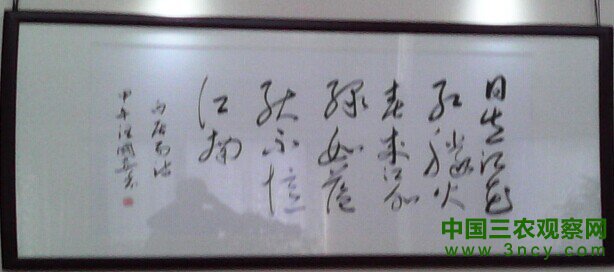 日出江花
红胜火
春来江水
绿如蓝
能不忆
江南
白居易诗
甲午
中国三农观察网
www.3ncy.com